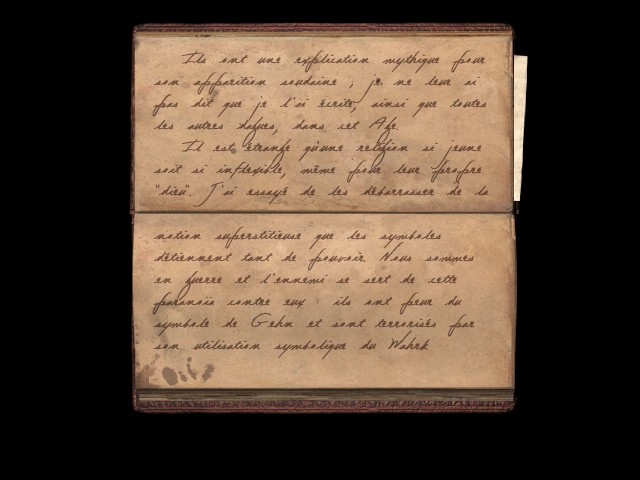 Ils ont une explication mythique pour
son apparition soudaine ; je ne leur ai
pas dit que je l'ai écrite, ainsi que toutes
les autres dagues, dans cet Age.
Il est étrange qu'une religion si jeune
soit si inflexible, même pour leur propre
"dieu". J'ai essayé de les débarrasser de la
notion superstitieuse que les symboles
détiennent tant de pouvoir Nous sommes
en guerre et l'ennemi se sert de cette
paranoïa contre eux : ils ont peur du
symbole de Gehn et sont terrorisés par
son utilisation symbolique du Wahrk